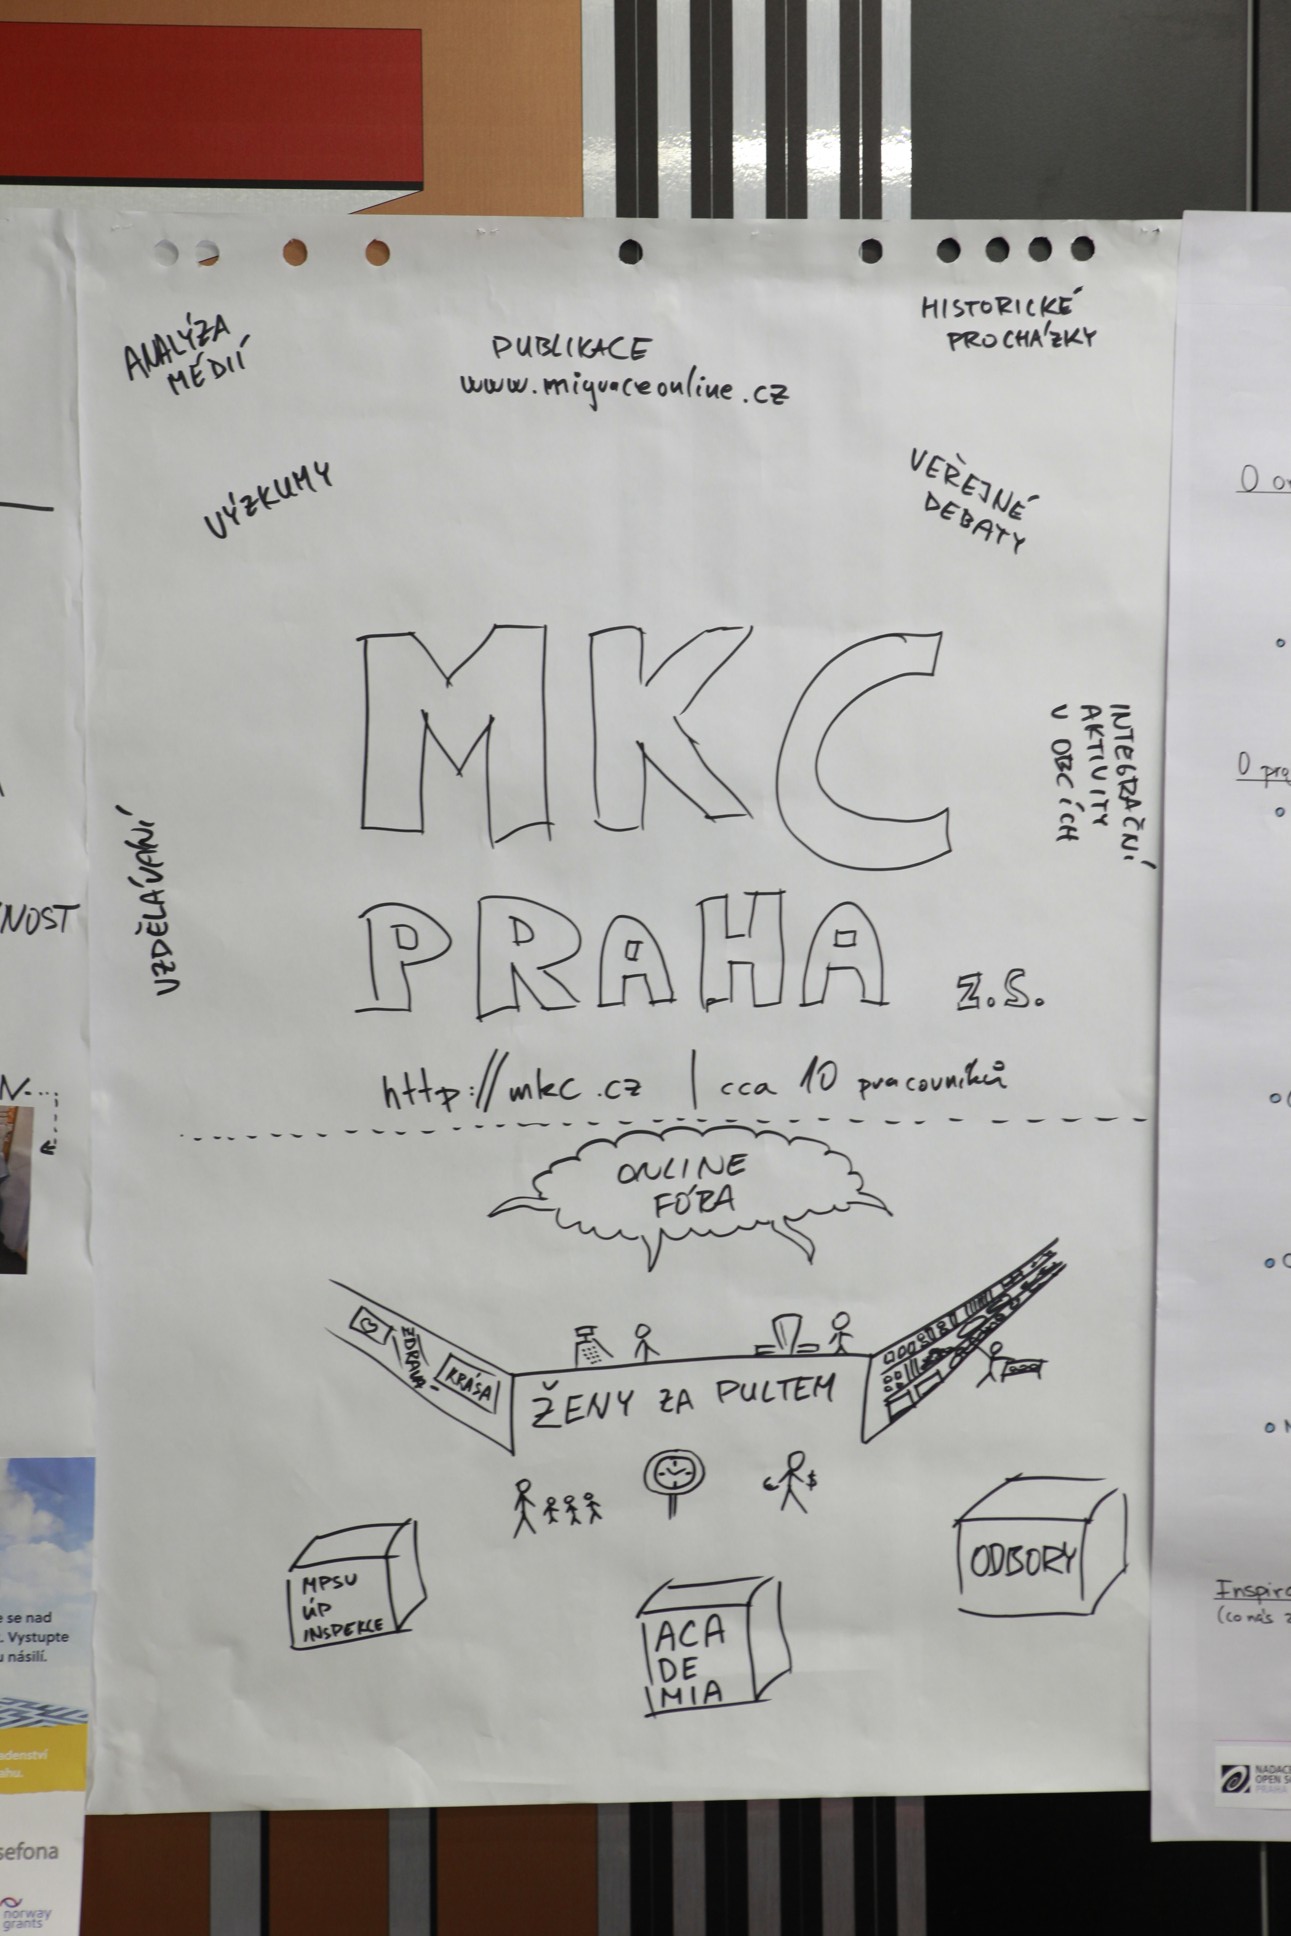 ANALÝZA
MÉDIÍ
PUBLIKACE
www.migraceonline.cz
HISTORICKÉ
PROCHÁZKY
VÝZKUMY
VEŘEJNÉ
DEBATY
MKC
PRAHA z.s.
VZDĚLÁVÁNÍ
INTEGRAČNÍ
AKTIVITY
V OBCÍCH
http://mkc.cz | cca 10 pracovníků
ONLINE
FÓRA
KRÁSA
ŽENY ZA PULTEM
MPSV
ÚP
INSPEKCE
ACA
DE
MIA
ODBORY
NOST
se nad
. Vystupte
násilí.
adenství
ahu.
sefona
norway
grants
Inspira
(co nás
NADACE
OPEN S
PRAHA